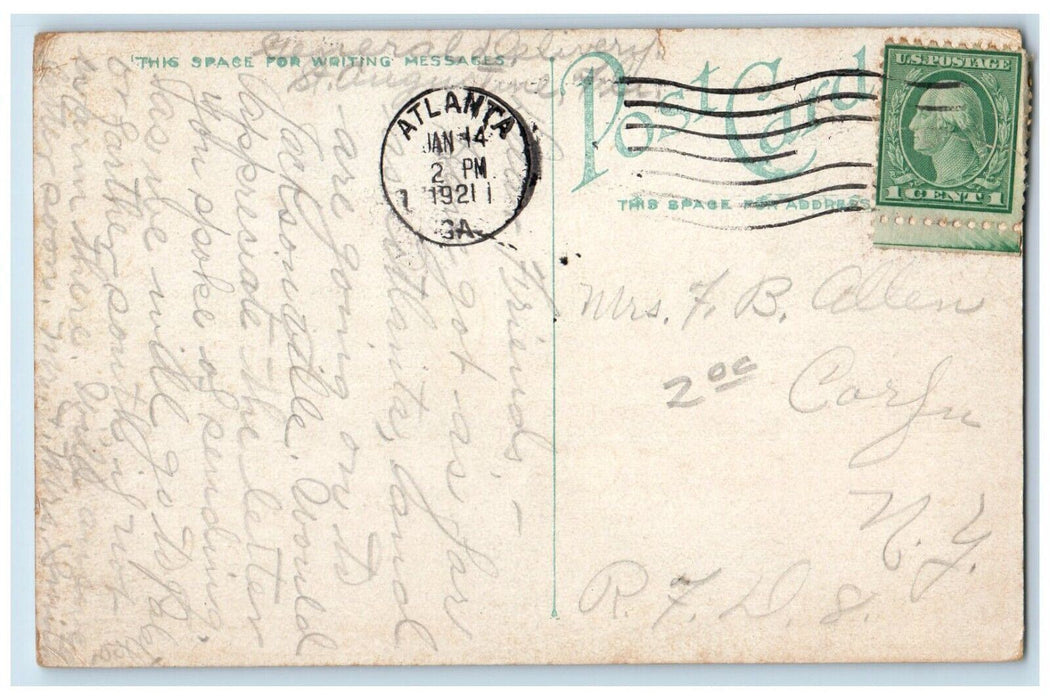 THIS SPACE FOR WRITING MESSAGES
General Delivery
St. Augustine, Fla.
Post Card
THIS SPACE FOR ADDRESS
U.S. POSTAGE
1 CENT 1
ATLANTA
JAN 14
2 PM
1921
GA.
Dear Friends, —
We got as far
as Atlanta, and
are going on to
Jacksonville. Would
appreciate the letter
you spoke of sending
as we will go to
or farther south if not
warm there. Will
soon.
Mrs. F. B. Allen
Corfu
N. Y.
R. F. D. 2.
2 00